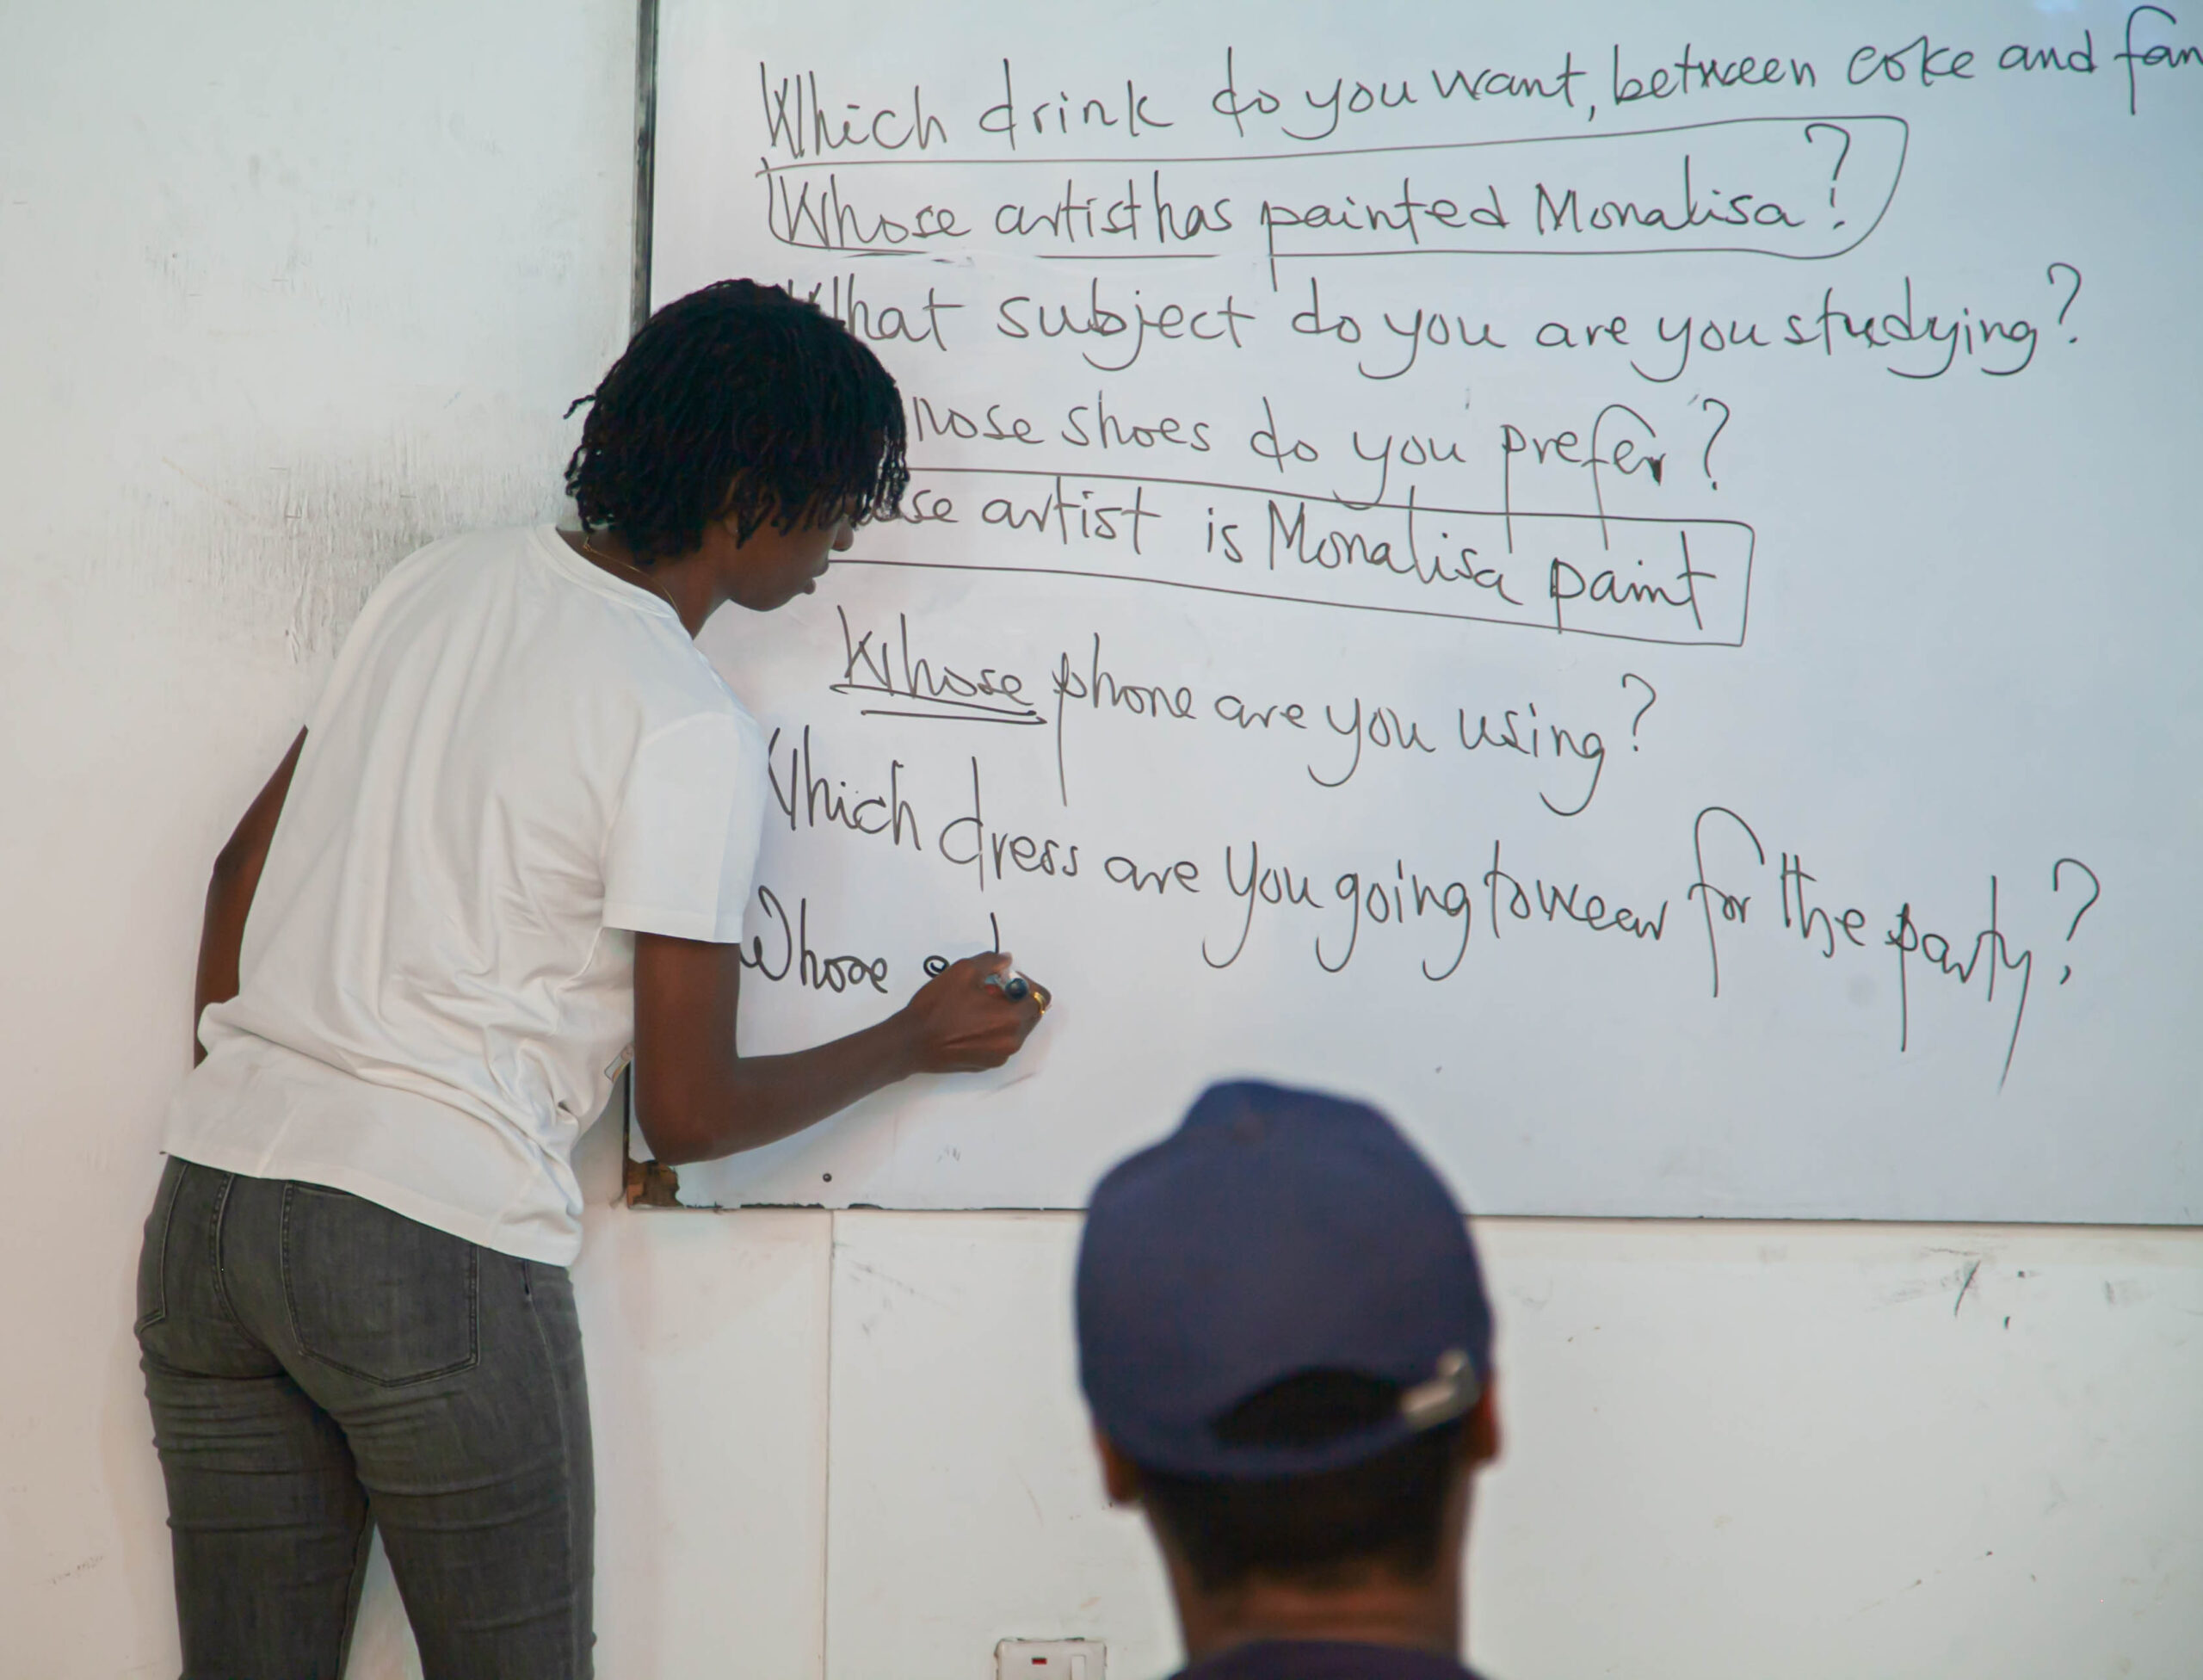 Which drink do you want, between coke and fan
Whose artist has painted Monalisa?
What subject do you are you studying?
hose shoes do you prefer?
ose artist is Monalisa paint
Whose phone are you using?
Which dress are you going to wear for the party?
Whose